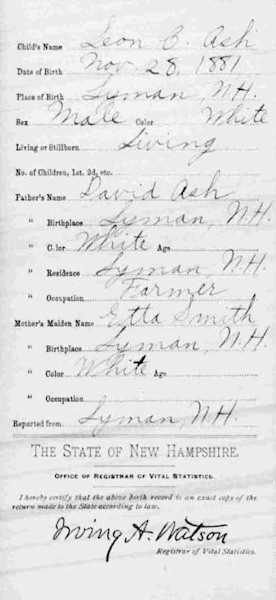 Child's Name Leon B. Ash
Date of Birth Nov. 28, 1881
Place of Birth Lyman, N.H.
Sex Male Color White
Living or Stillborn Living
No. of Children, 1st, 2d, etc.
Father's Name David Ash
" Birthplace Lyman, N.H.
" Color White Age
" Residence Lyman, N.H.
" Occupation Farmer
Mother's Maiden Name Etta Smith
" Birthplace Lyman, N.H.
" Color White Age
" Occupation
Reported from Lyman, N.H.
THE STATE OF NEW HAMPSHIRE.
OFFICE OF REGISTRAR OF VITAL STATISTICS.
I hereby certify that the above birth record is an exact copy of the
return made to the State according to law.
Irving A. Watson
Registrar of Vital Statistics.